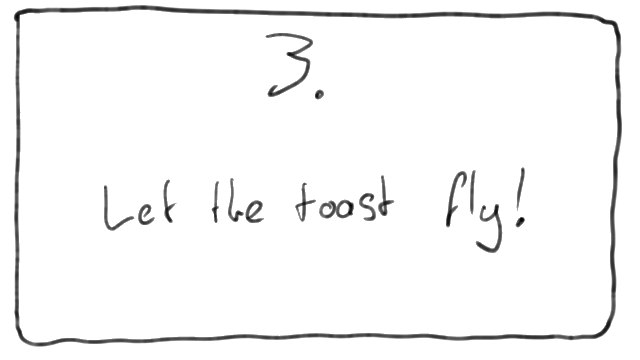 3.
Let the toast fly!